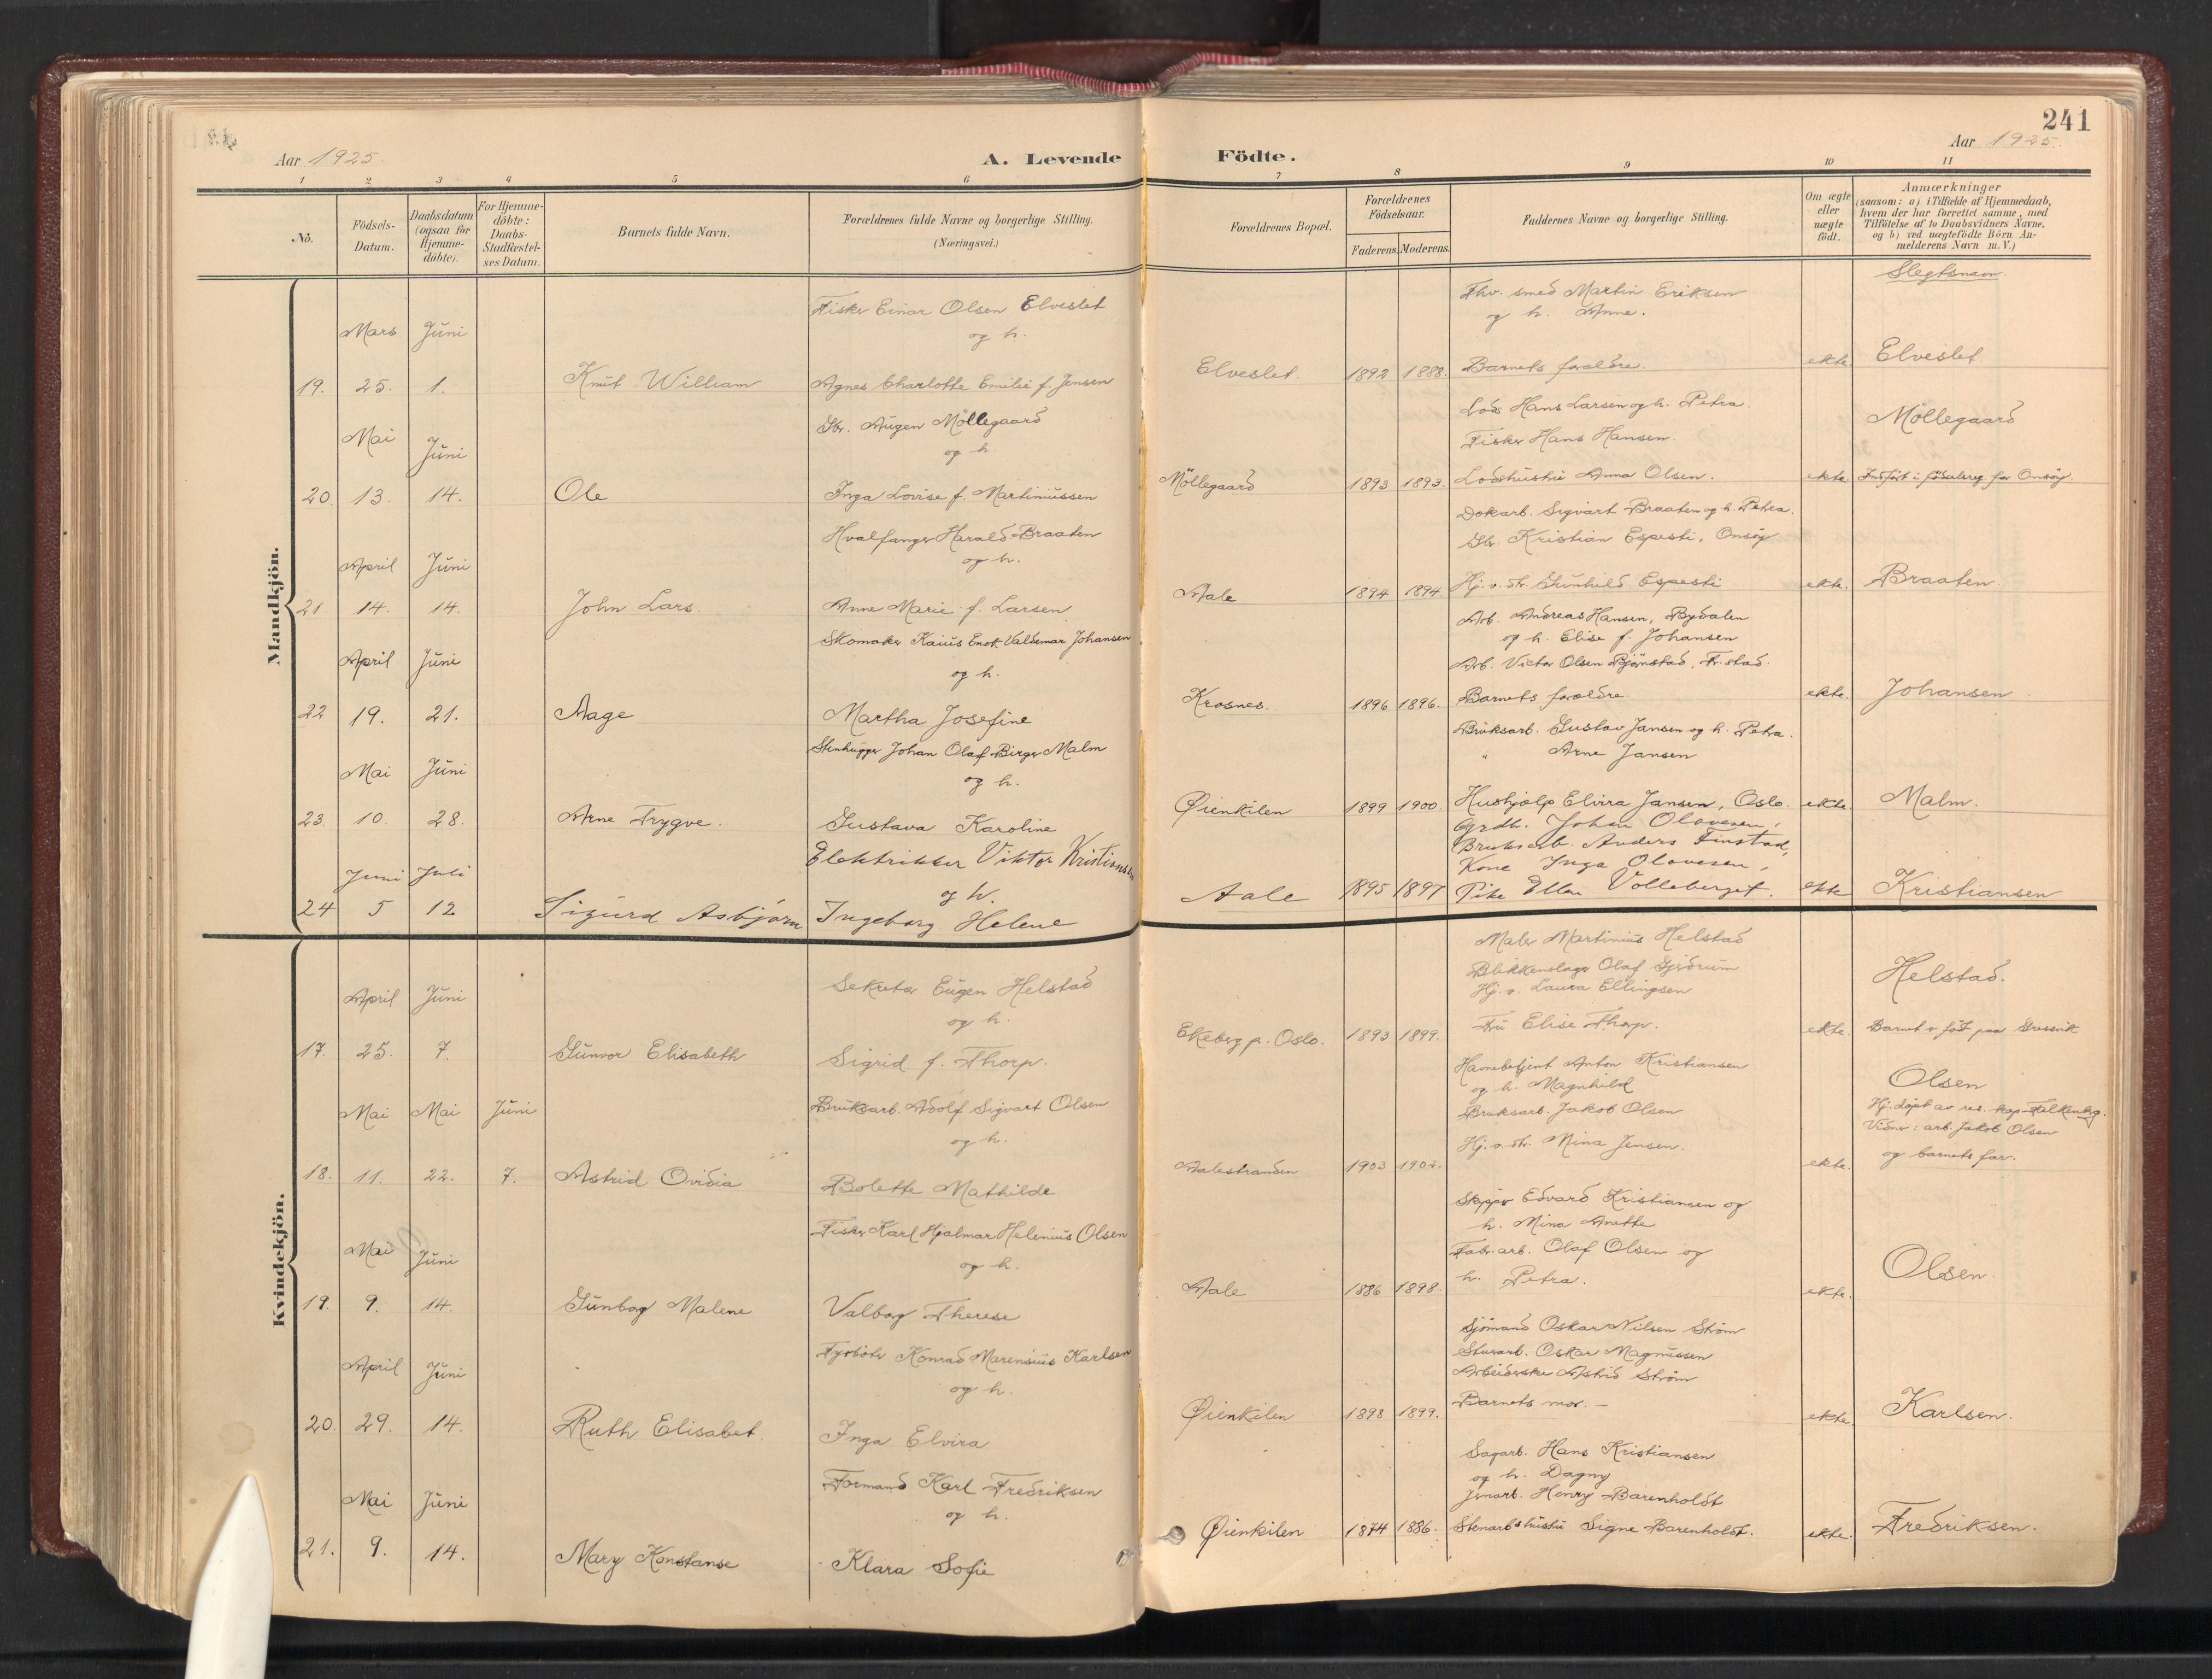 241
Aar 1925.
A. Levende Födte.
Aar 1925.
1 2 3 4 5 6 7 8 9 10 11
Nò.
Födsels-Datum.
Daabsdatum (ogsaa för Hjemme-döbte).
For Hjemme-döbte: Daabs-Stadfæstel-ses Datum.
Barnets fulde Navn.
Forældrenes fulde Navne og borgerlige Stilling.
(Næringsvei.)
Forældrenes Bopæl.
Forældrenes Födselsaar.
Faderens. Moderens.
Faddernes Navne og borgerlige Stilling.
Om ægte eller uægte födt.
Anmærkninger
(saasom: a) i Tilfælde af Hjemmedaab,
hvem der har forrettet samme, med
Tilföielse af to Daabsvidners Navne,
og b) ved uægtefödte Börn An-
melderens Navn m. V.)
Slegtsnavn
Mandkjön.
Fisker Einar Olsen Elveslet
og h.
Thv. smed Martin Eriksen
og h. Anne.
Mars Juni
19. 25. 1. Knut William
Agnes Charlotte Emilie f. Jensen
Elveslet. 1892 1888. Barnets forældre. ekte. Elveslet
Gbr. Augen Möllegaard
og h.
Lods Hans Larsen og h. Petra.
Fisker Hans Hansen.
Möllegaard
Mai Juni
20. 13. 14. Ole
Inga Lovise f. Martiniussen
Möllegaard 1893 1893. Lodshustru Anna Olsen. ekte. Indført i fødselsreg for Onsøy.
Hvalfanger Harald Braaten
og h.
Dokarb. Sigvart Braaten og h. Petra.
Gbr. Kristian Espesti, Onsøy
April Juni
21 14. 14. John Lars
Anne Marie f. Larsen
Aale 1894 1894. Hj.v. dtr. Gunhild Espesti ekte. Braaten.
Skomaker Kaius Enok Valdemar Johansen
og h.
Arb. Andreas Hansen, Bydalen
og h. Elise f. Johansen
Arb. Victor Olsen Bjørnstad, Fr.stad.
April Juni
22 19. 21. Aage
Martha Josefine
Krosnes. 1896 1896. Barnets forældre. ekte. Johansen
Stenhugger Johan Olaf Birger Malm
og h.
Bruksarb. Gustav Jansen og h. Petra.
" Arne Jansen
Mai Juni
23. 10. 28. Arne Trygve.
Gustava Karoline
Øienkilen 1899 1900. Hushjælp Elvira Jansen, Oslo. ekte. Malm.
Elektriker Viktor Kristiansen
og h.
Grdbr. Johan Olavesen,
Bruksarb. Anders Finstad,
Kone Inga Olavesen,
Juni Juli
24 5 12 Sigurd Asbjørn
Ingeborg Helene
Aale 1895 1897 Pike Ellen Volleberget. ekte Kristiansen
Kvindekjön.
Sekretær Eugen Helstad
og h.
Maler Martinius Helstad
Blikkenslager Olaf Gjedrum
Hj. v. Laura Ellingsen
Helstad.
April Juni
17. 25. 7. Gunvor Elisabeth
Sigrid f. Thorp.
Ekeberg p. Oslo. 1893 1899. Fru Elise Thorp. ekte. Barnet er født paa Gressvik
Bruksarb. Adolf Sigvart Olsen
og h.
Havnebetjent Anton Kristiansen
og h. Magnhild
Bruksarb. Jakob Olsen
Hj. v. dtr. Mina Jensen.
Olsen
Hj. døpt av res. kap. Falkenberg.
Vidner: arb. Jakob Olsen
og barnets far.
Mai Mai Juni
18. 11. 22. 7. Astrid Ovidia
Bolette Mathilde
Aalestranden 1903 1902. ekte.
Fisker Karl Hjalmar Helenius Olsen
og h.
Skipper Edvard Kristiansen og
h. Mina Anette
Fabr. arb. Olaf Olsen og
h. Petra.
Mai Juni
19. 9. 14. Gunborg Malene
Valborg Therese
Aale 1886 1898. ekte. Olsen
Fyrbøter Konrad Marensius Karlsen
og h.
Sjömand Oskar Nilsen Ström
Stuerarb. Oskar Magnussen
Arbeiderske Astrid Ström
Barnets mor. —
April Juni
20. 29. 14. Ruth Elisabet.
Inga Elvira
Øienkilen 1898 1899. ekte. Karlsen.
Formand Karl Fredriksen
og h.
Sagarb. Hans Kristiansen
og h. Dagny
Jernarb. Henry Barenholdt
Mai Juni
21. 9. 14. Mary Konstanse
Klara Sofie
Øienkilen 1874 1886. Stenarb.hustru Signe Barenholdt. ekte. Fredriksen.